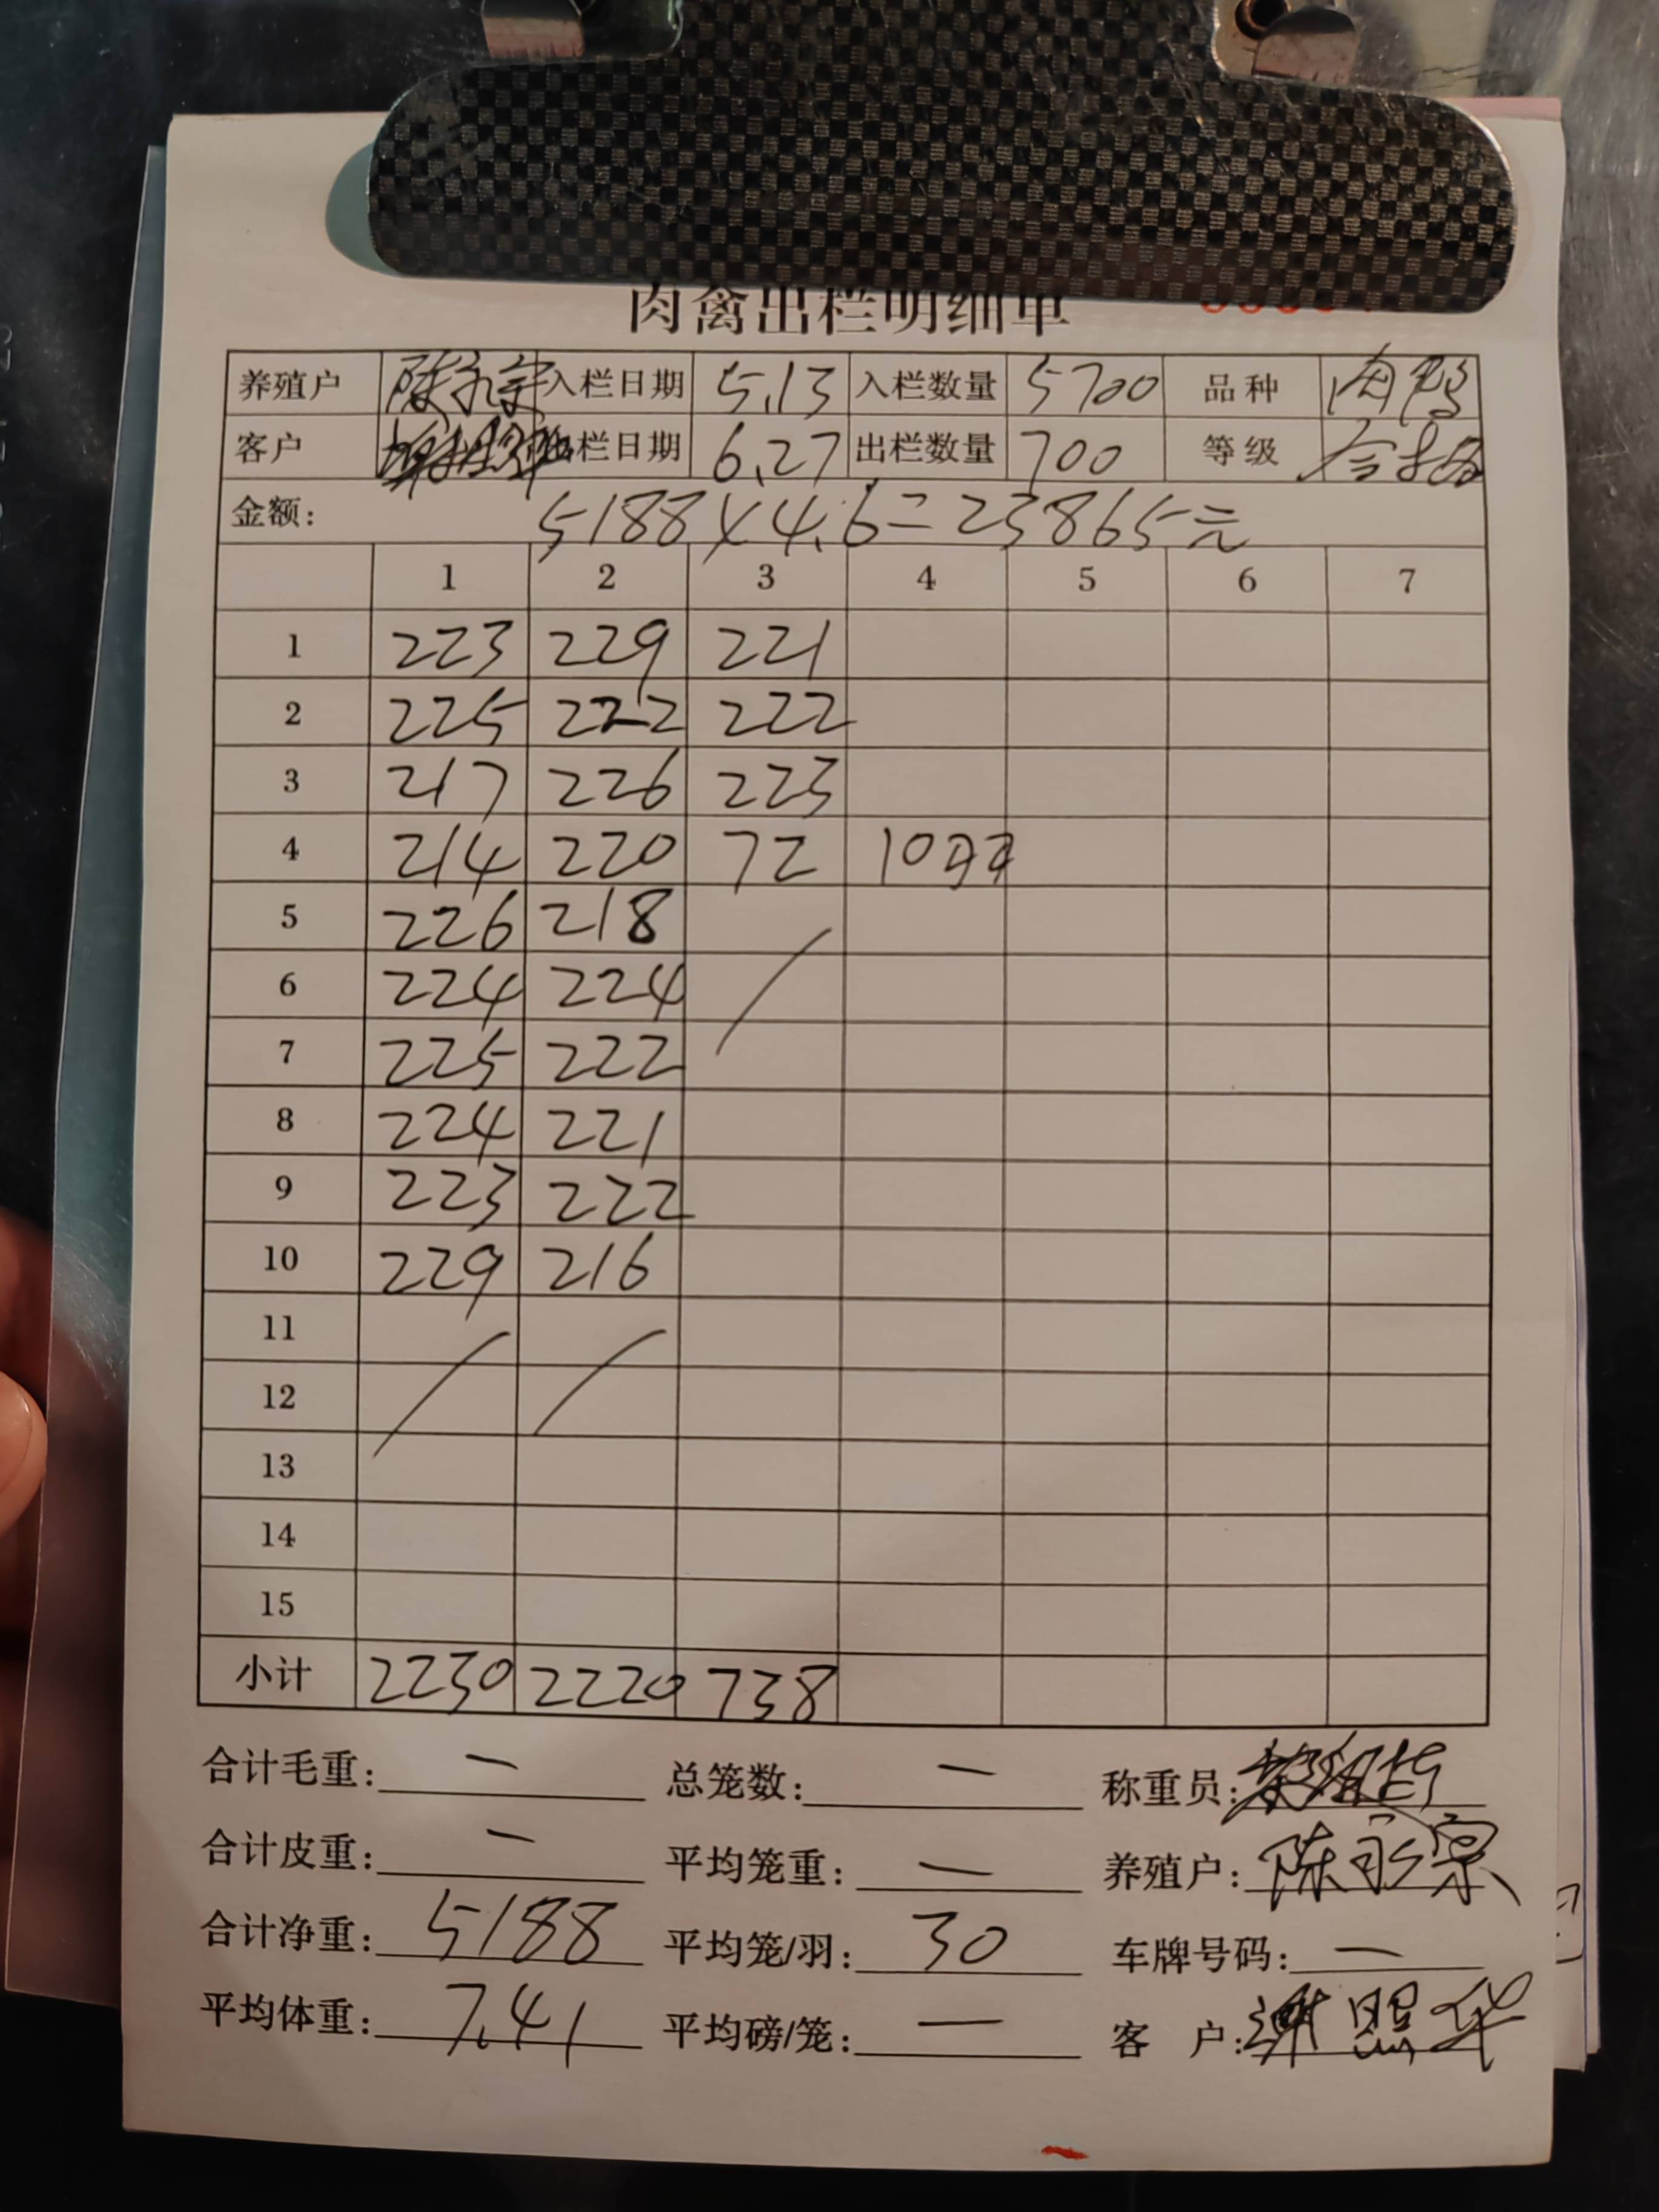 肉禽出栏明细单
养殖户 陈永宗 入栏日期 5.13 入栏数量 5700 品种 肉鸭
客户 栏日期 6.27 出栏数量 700 等级 合格
金额: 5188×4.6=23865元
1 2 3 4 5 6 7
1 223 229 221
2 225 222 222
3 217 226 223
4 214 220 72 10只
5 226 218
6 224 224
7 225 222
8 224 221
9 223 222
10 229 216
11
12
13
14
15
小计 2230 2220 738
合计毛重: 一 总笼数: 一 称重员:
合计皮重: 一 平均笼重: 一 养殖户: 陈永宗
合计净重: 5188 平均笼/羽: 30 车牌号码: 一
平均体重: 7.41 平均磅/笼: 一 客 户: 谢照华